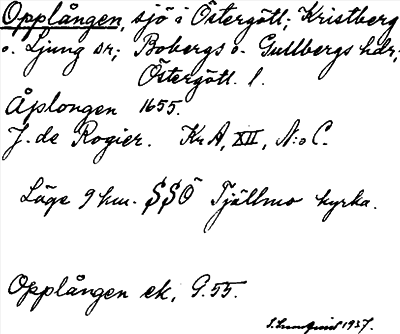 Opplången, sjö i Östergötl; Kristberg
o. Ljung sr; Bobergs o. Gullbergs hdr;
Östergötl. l.
Åplongen 1655.
J. de Rogier. KrA, XII, N:o C.
Läge 9 km. SSÖ Tjällmo kyrka.
Opplången ek, G.55.
S. Lundquist 1937.